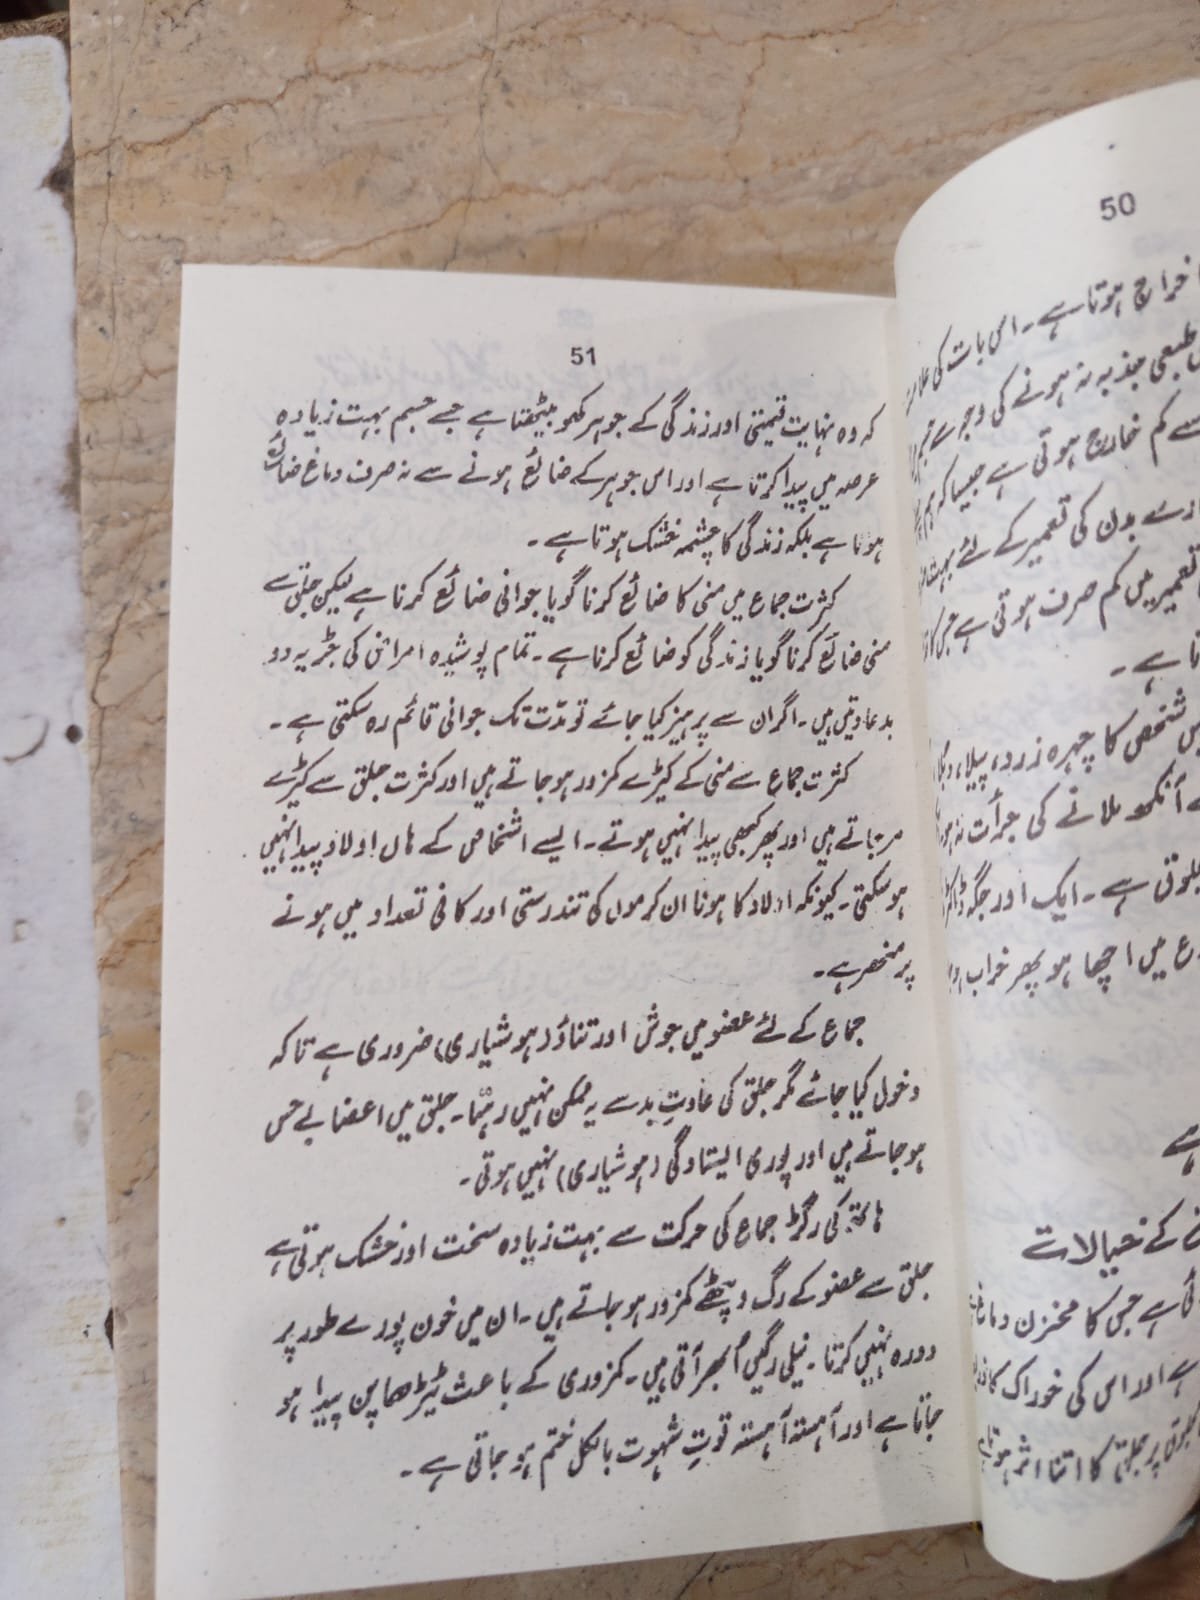 51
کہ وہ نہایت قیمتی اور زندگی کے جوہر کھو بیٹھتا ہے جسے جسم بہت زیادہ
عرصہ میں پیدا کرتا ہے اور اس جوہر کے ضائع ہونے سے نہ صرف دماغ ضائع
ہوتا ہے بلکہ زندگی کا چشمہ خشک ہوتا ہے ۔
کثرت جماع میں منی کا ضائع کرنا گویا جوانی ضائع کرنا ہے لیکن جلق سے
منی ضائع کرنا گویا زندگی کو ضائع کرنا ہے ۔ تمام پوشیدہ امراض کی جڑ یہ دو
بد عادتیں ہیں ۔ اگر ان سے پرہیز کیا جائے تو مدّت تک جوانی قائم رہ سکتی ہے ۔
کثرت جماع سے منی کے کیڑے کمزور ہو جاتے ہیں اور کثرت جلق سے کیڑے
مر جاتے ہیں اور پھر کبھی پیدا نہیں ہوتے ۔ ایسے اشخاص کے ہاں اولاد پیدا نہیں
ہو سکتی ۔ کیونکہ اولاد کا ہونا ان کرموں کی تندرستی اور کافی تعداد میں ہونے
پر منحصر ہے ۔
جماع کے لئے عضو میں جوش اور تناؤ (ہوشیاری) ضروری ہے تاکہ
دخول کیا جائے مگر جلق کی عادتِ بد سے یہ ممکن نہیں رہتا ۔ جلق میں اعضا بے حس
ہو جاتے ہیں اور پوری ایستادگی (ہوشیاری) نہیں ہوتی ۔
ہاتھ کی رگڑ جماع کی حرکت سے بہت زیادہ سخت اور خشک ہوتی ہے
جلق سے عضو کے رگ و پٹھے کمزور ہو جاتے ہیں ۔ ان میں خون پورے طور پر
دورہ نہیں کرتا ۔ نیلی رگیں اُبھر آتی ہیں ۔ کمزوری کے باعث ٹیڑھا پن پیدا ہو
جاتا ہے اور آہستہ آہستہ قوتِ شہوت بالکل ختم ہو جاتی ہے ۔
50
خراج ہوتا ہے ۔ اس بات کی
طبعی جذبہ نہ ہونے کی وجہ سے
سے کم خارج ہوتی ہے جیسا کہ ہم
بدن کی تعمیر کے لئے
تعمیر میں کم صرف ہوتی ہے جس کا
ہے ۔
شخص کا چہرہ زرد، پیلا،
آنکھ ملانے کی جرأت نہ ہو
ہے ۔ ایک اور جگہ ڈاکٹر
میں اچھا ہو پھر خراب ہو
ہے
کے خیالات
ہے جس کا مخزن دماغ
ہے اور اس کی خوراک کا
پر جلق کا اتنا اثر ہوتا